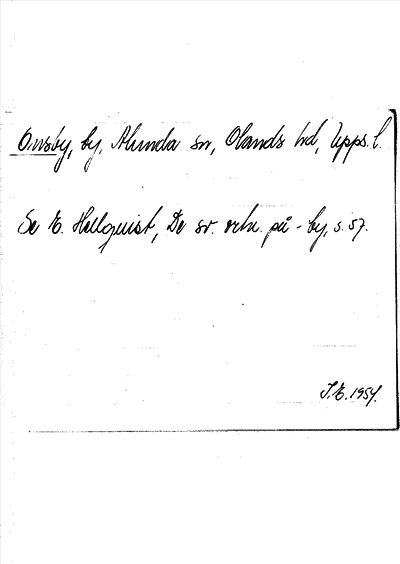 Onsby, by, Alunda sn, Olands hd, Upps. l.
Se E. Hellquist, De sv. ortn. på -by, s. 57.
J.E. 1954.